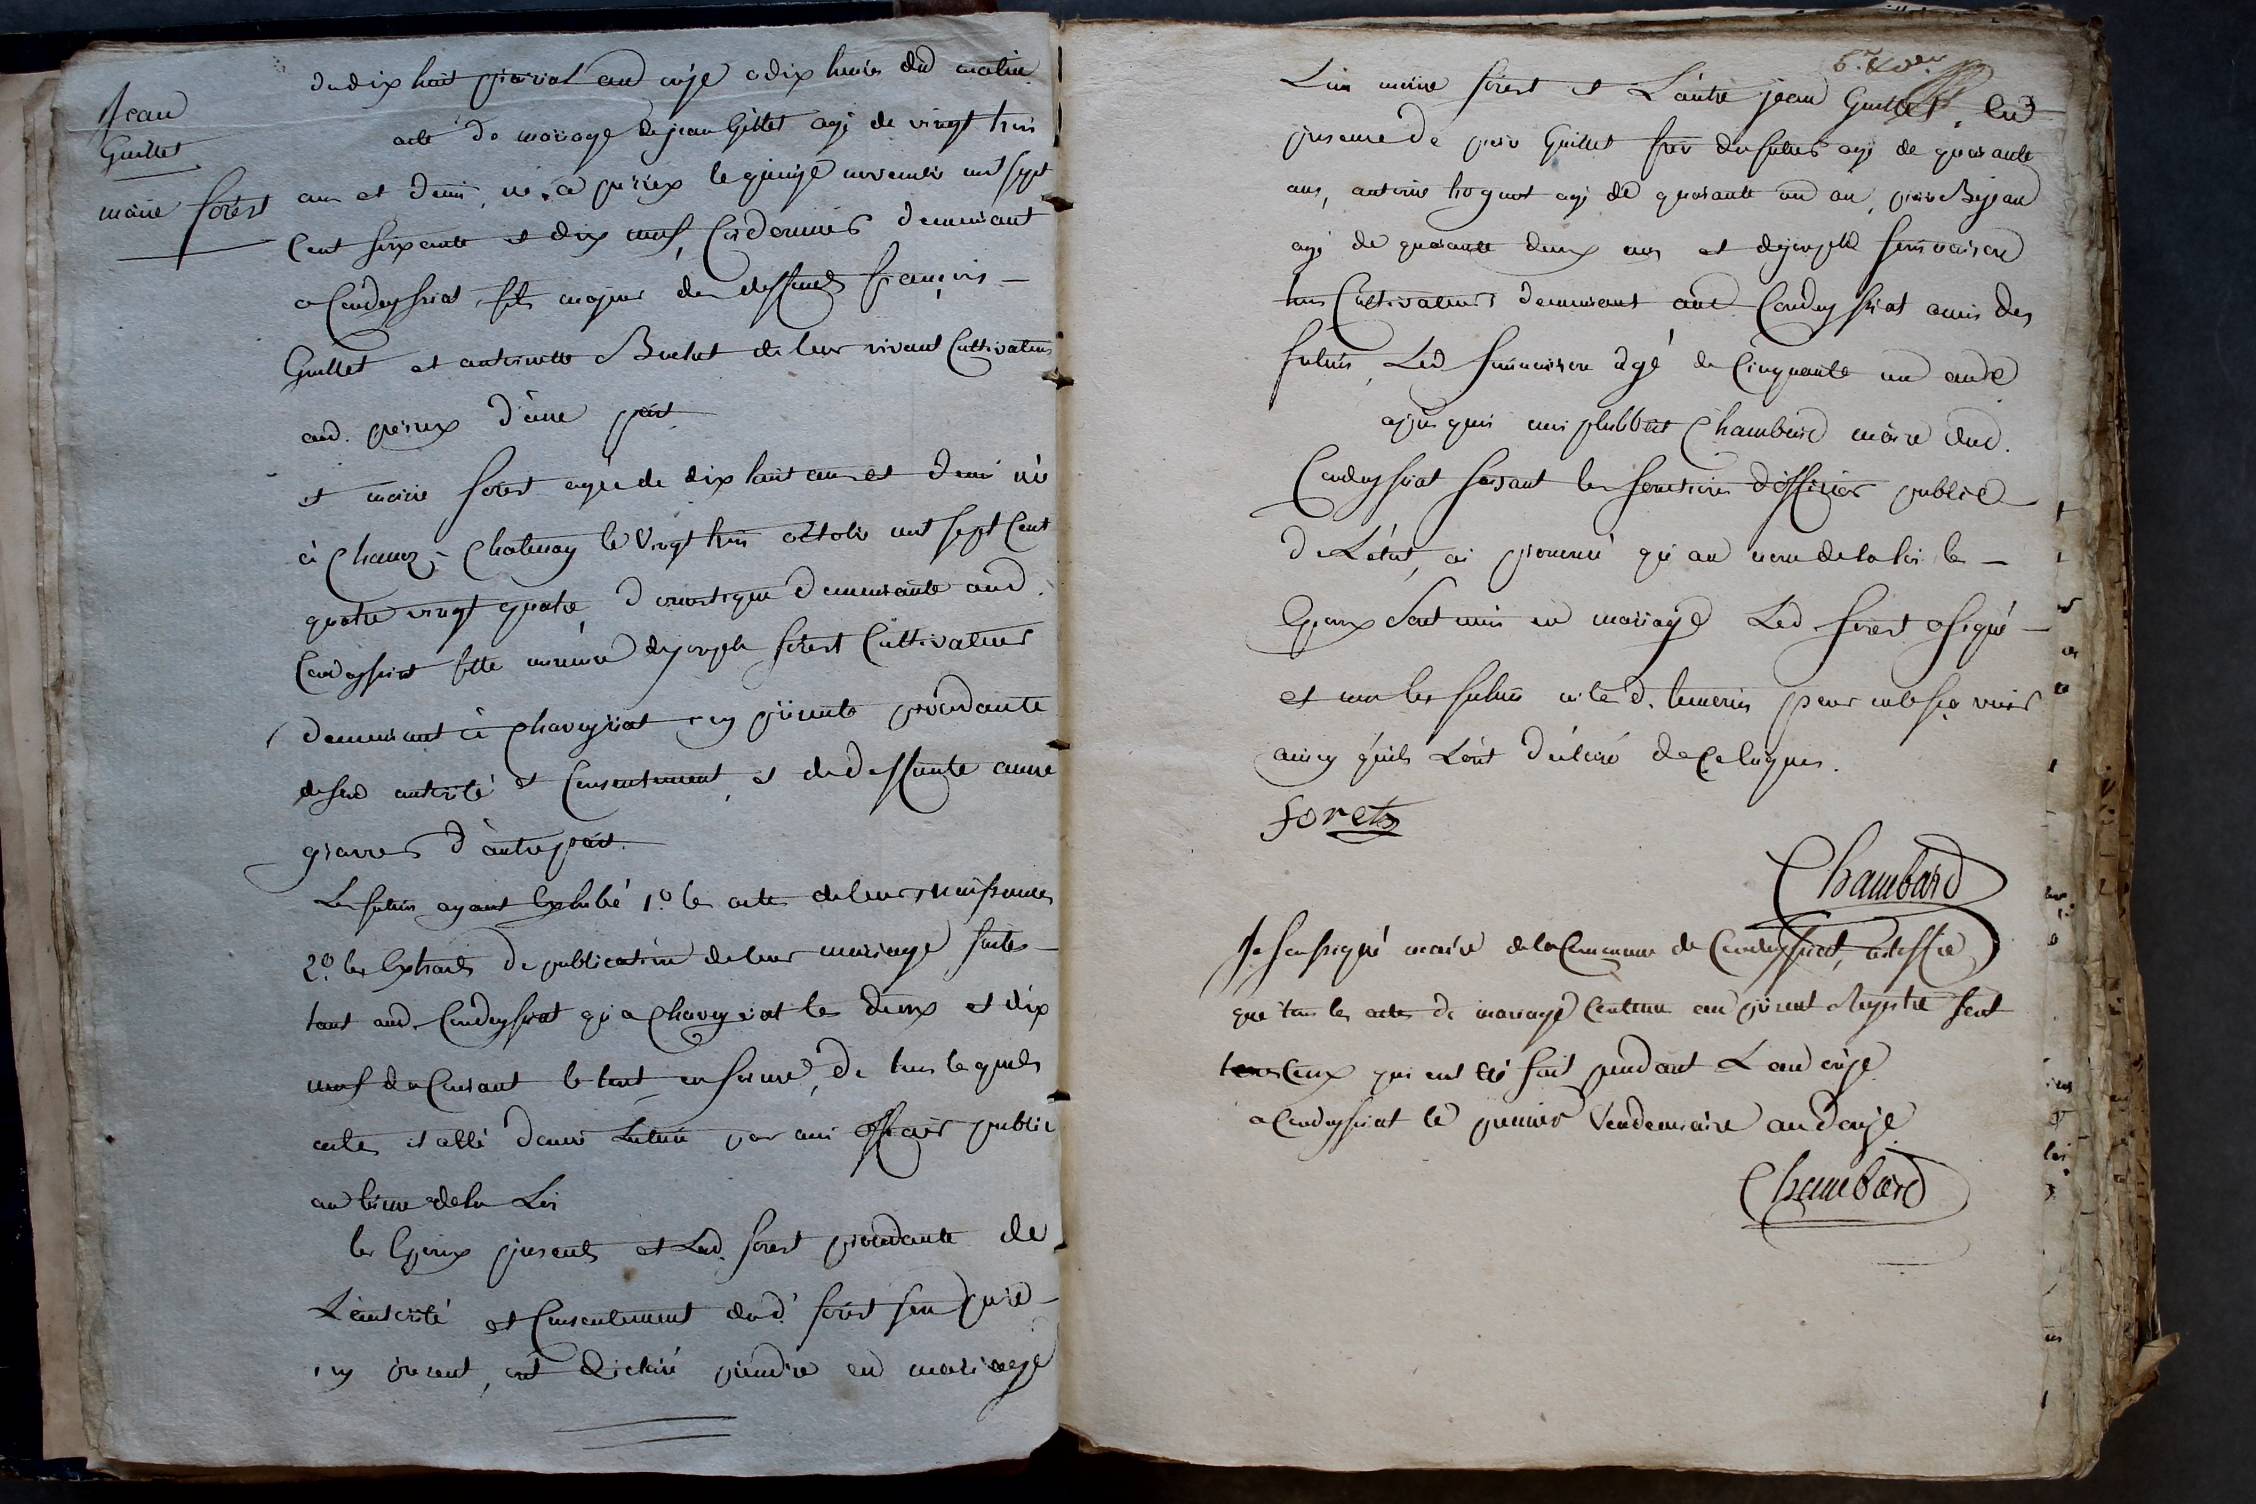 Jean
Guillet
marie forest
du dix huit prairial an onze a dix heures du matin
acte de mariage de jean Gillet agé de vingt trois
ans et demi, né a perrex le quinze novembre mil sept
Cent soixante et dix neuf, Cordonnier demeurant
a Condeyssiat fils majeur des deffunds françois
Guillet et antoinette Buchet de leur vivant Cultivateurs
aud. perrex d'une part
et marie forest agée de dix huit ans et demi née
à Chanoz-Chatenay le vingt trois octobre mil sept Cent
quatre vingt quatre, domestique demeurante aud.
Condeyssiat fille mineure de joseph forest Cultivateur
demeurant à Chaveyriat icy présente procédante
de son autorité et Consentement, et de deffunte anne
d'autre part.
Les futurs ayant Exhibé 1.º les actes de leurs naissances
2.º les Extraits de publication de leur mariage faites
tant aud. Condeyssiat qu'a Chaveyriat les deux et dix
neuf du Courant le tout en forme, de tous lesquels
actes il a été donné Lecture par moi officier public
au terme de la Loi
les Epoux présents et Lad. forest procédante de
L'autorité et Consentement dud. forest son père
icy présent, ont déclaré prendre en mariage
L'un marie forest et L'autre jean Guillet, En
présence de Guillet frère du futur agé de quarante
ans, antoine agé de quarante un an, Bejean
agé de quarante deux ans et de joseph
tous Cultivateurs demeurant aud. Condeyssiat amis des
futurs, Led. agé de Cinquante un ans
après quoi moi philibert Chambard maire dud.
Condeyssiat faisant les fonctions d'officier public
de L'état, ai prononcé qu'au nom de la loi les
Epoux Sont unis en mariage Led. forest a signé
et non les futurs ni led. temoins pour ne le sçavoir
ainsy qu'ils L'ont déclaré de Ce Enquis.
foret
Chambard
Je soussigné maire de la Commune de Condeyssiat, certiffie
que tous les actes de mariage Contenus au présent Registre sont
tous Ceux qui ont été fait pendant L'an onze
a Condeyssiat le premier Vendemiaire an Douze
Chambard